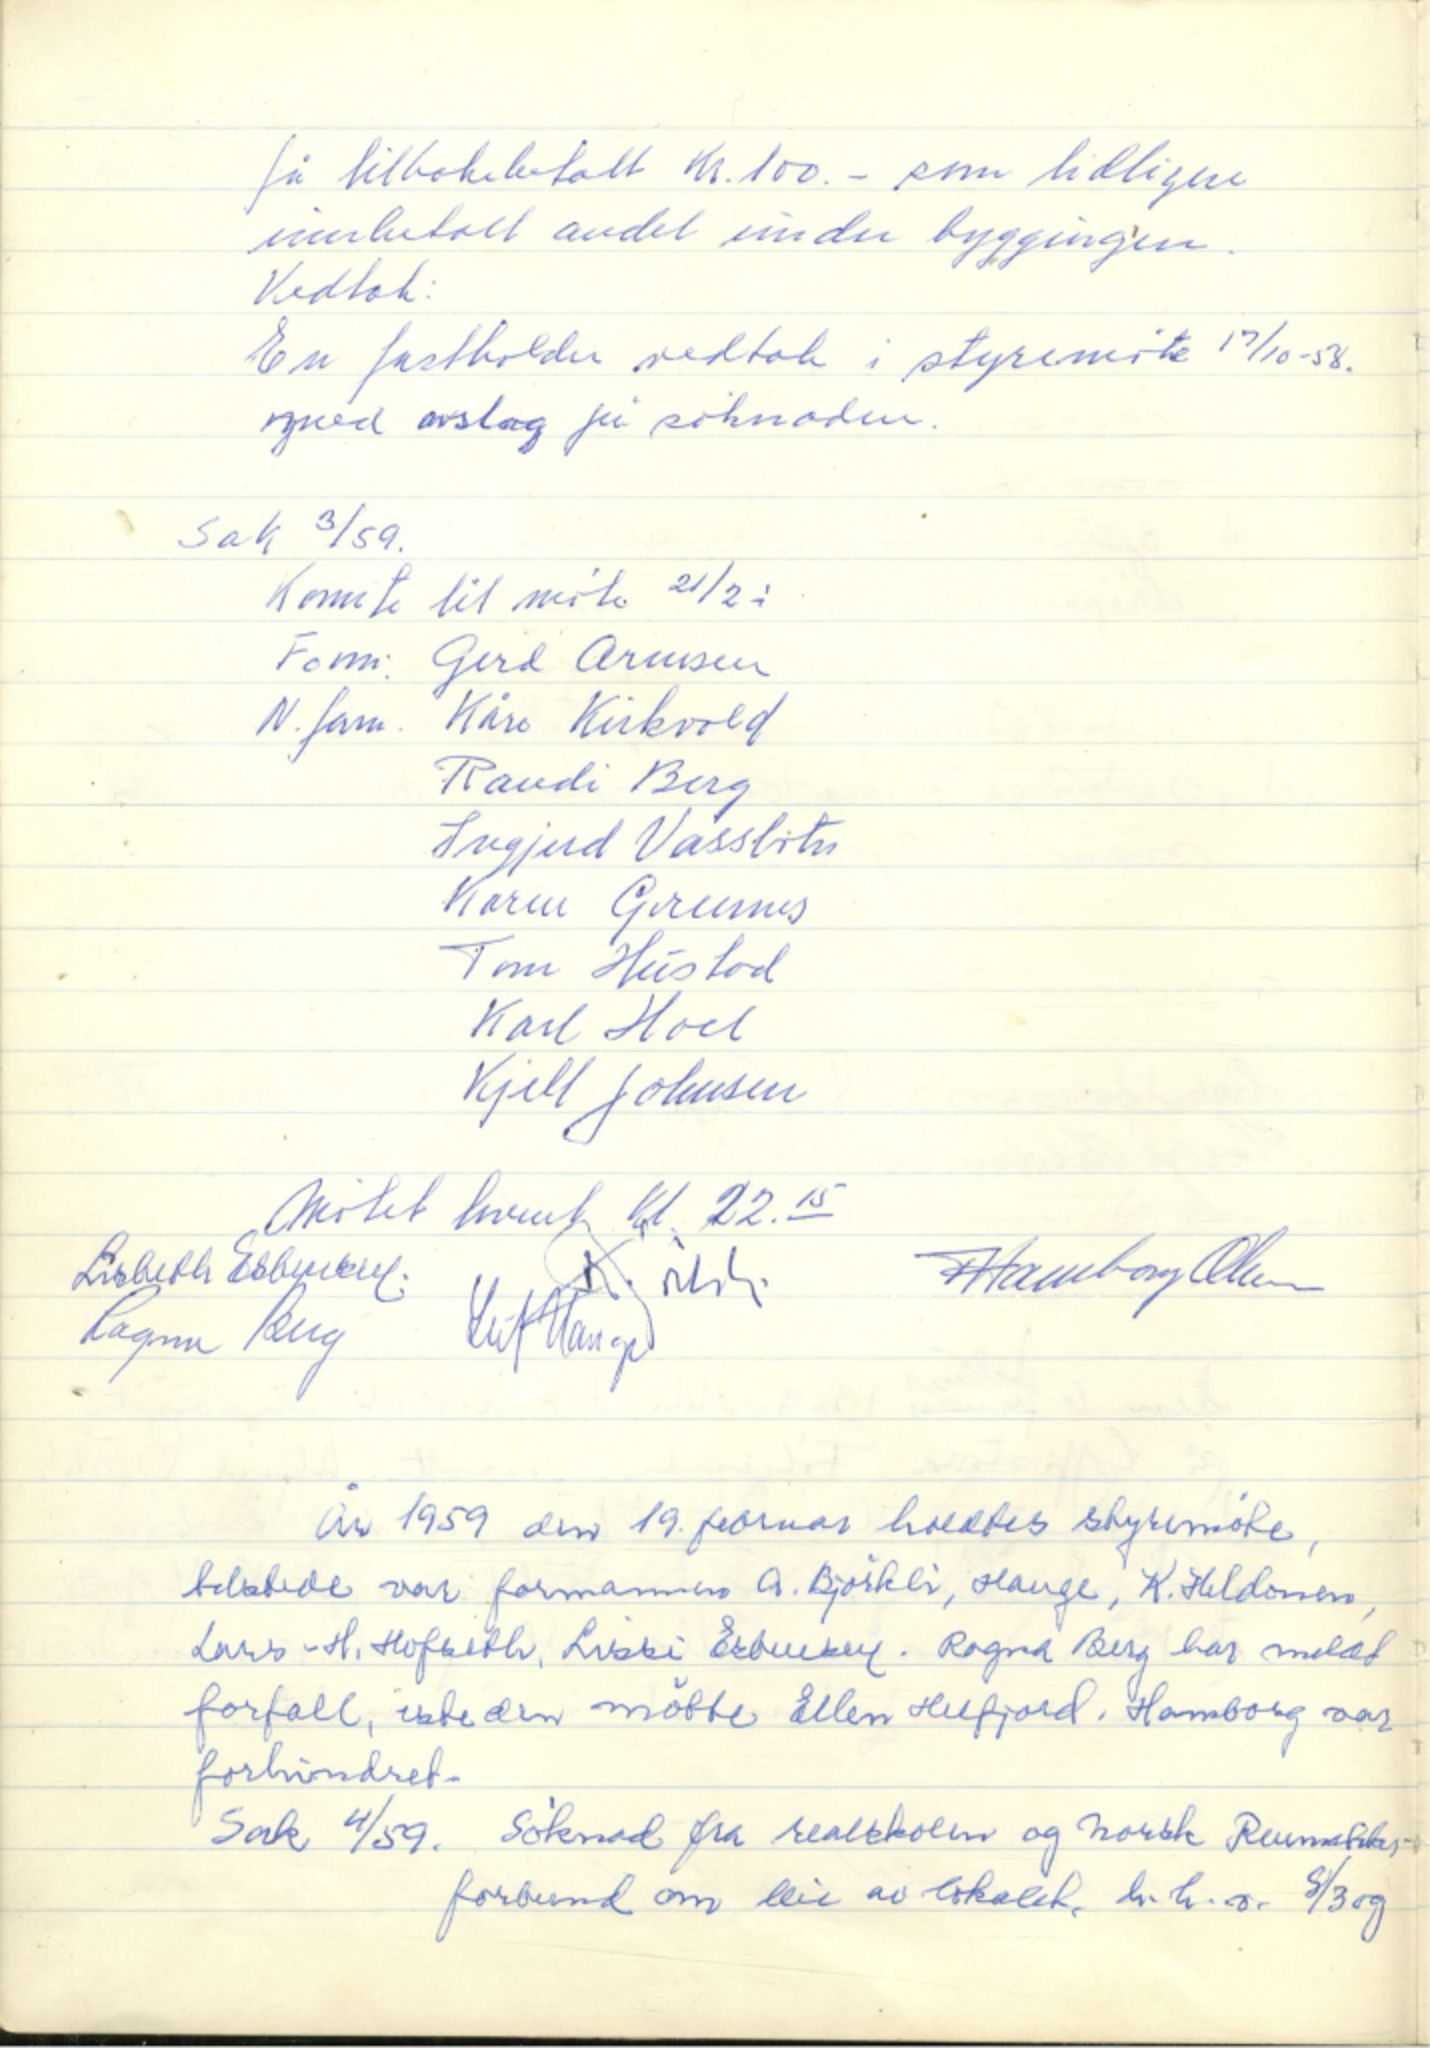 få tilbakebetalt Kr. 100.- som tidligere
innbetalt andel under byggingen.
Vedtak:
En fastholder vedtak i styremöte 17/10-58.
med avslag på söknaden.
Sak 3/59.
Komite til möte 21/2:
Form: Gerd Arnesen
N. form. Kåre Kirkvold
Randi Berg
Ingjerd Vasslotn
Karen Grennes
Tom Hustad
Karl Hoel
Kjell Johnsen
Mötet hevet Kl. 22.15
Lisbeth Esbensen. Hamborg Olsen
Ragna Berg Leif Hauge
År 1959 den 19. februar holdtes styremöte,
tilstede var formannen A. Björkli, Hauge, K. Heldonen,
Lars-H. Hofseth, Lissi Esbensen. Ragna Berg har meldt
forfall, isteden mötte Ellen Helfjord. Hamborg var
forhindret.
Sak 4/59. Söknad fra realskolen og Norsk
forbund om leie av lokalet, h.h.v. 8/3 og